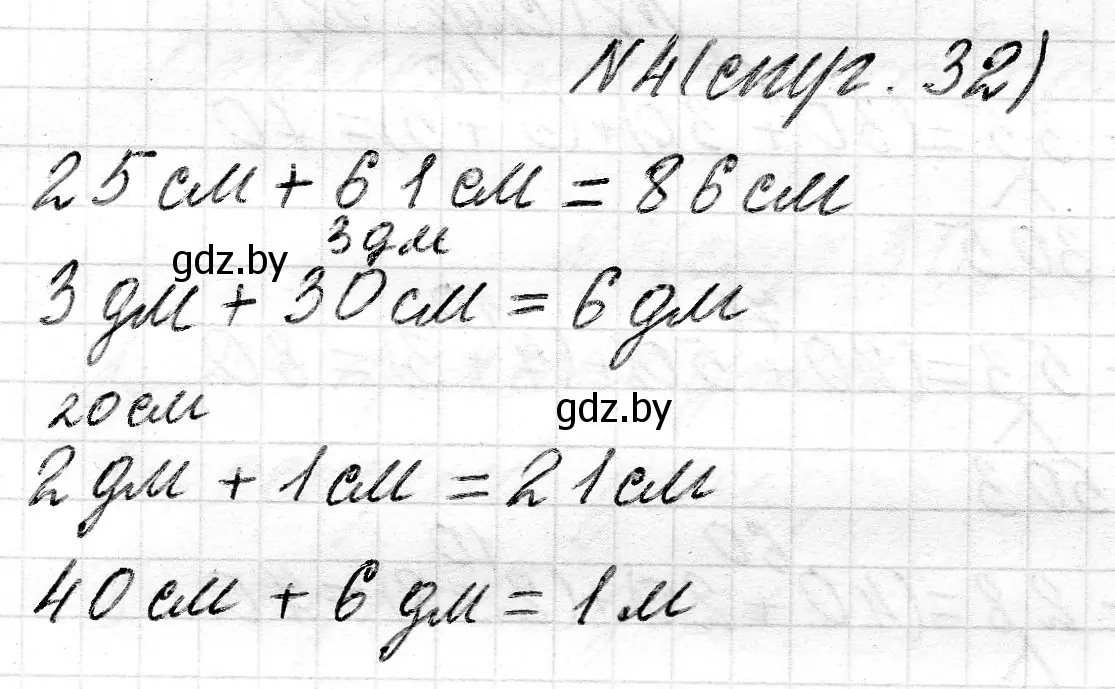 №4(стр. 32)
25 см + 61 см = 86 см
3 дм
gdz.by
3 дм + 30 см = 6 дм
20 см
gdz.by
2 дм + 1 см = 21 см
40 см + 6 дм = 1 м